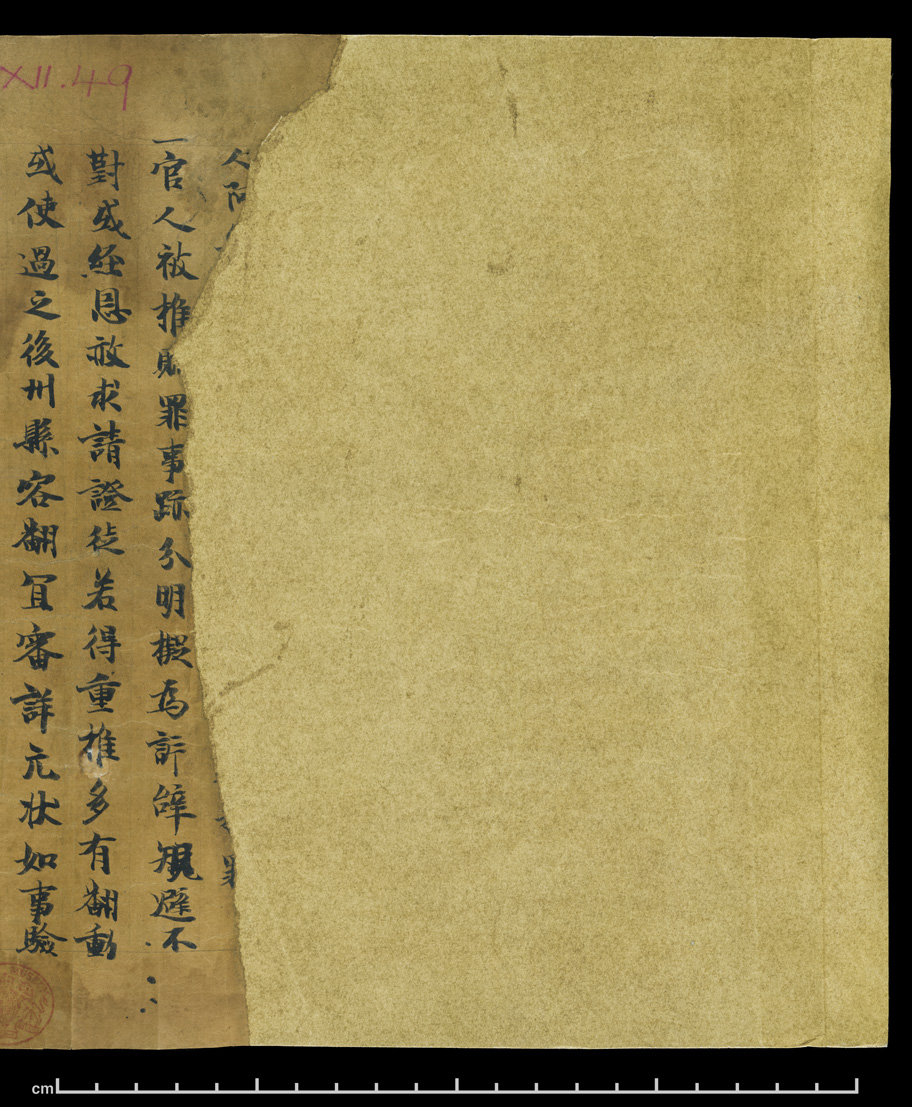 XII.49
人阿
罪
一官人被推贓罪事跡分明擬爲訴辞規避不
對或經恩赦求請證徒若得重推多有翻動
或使過之後州縣容翻冝審詳元状如事驗
cm